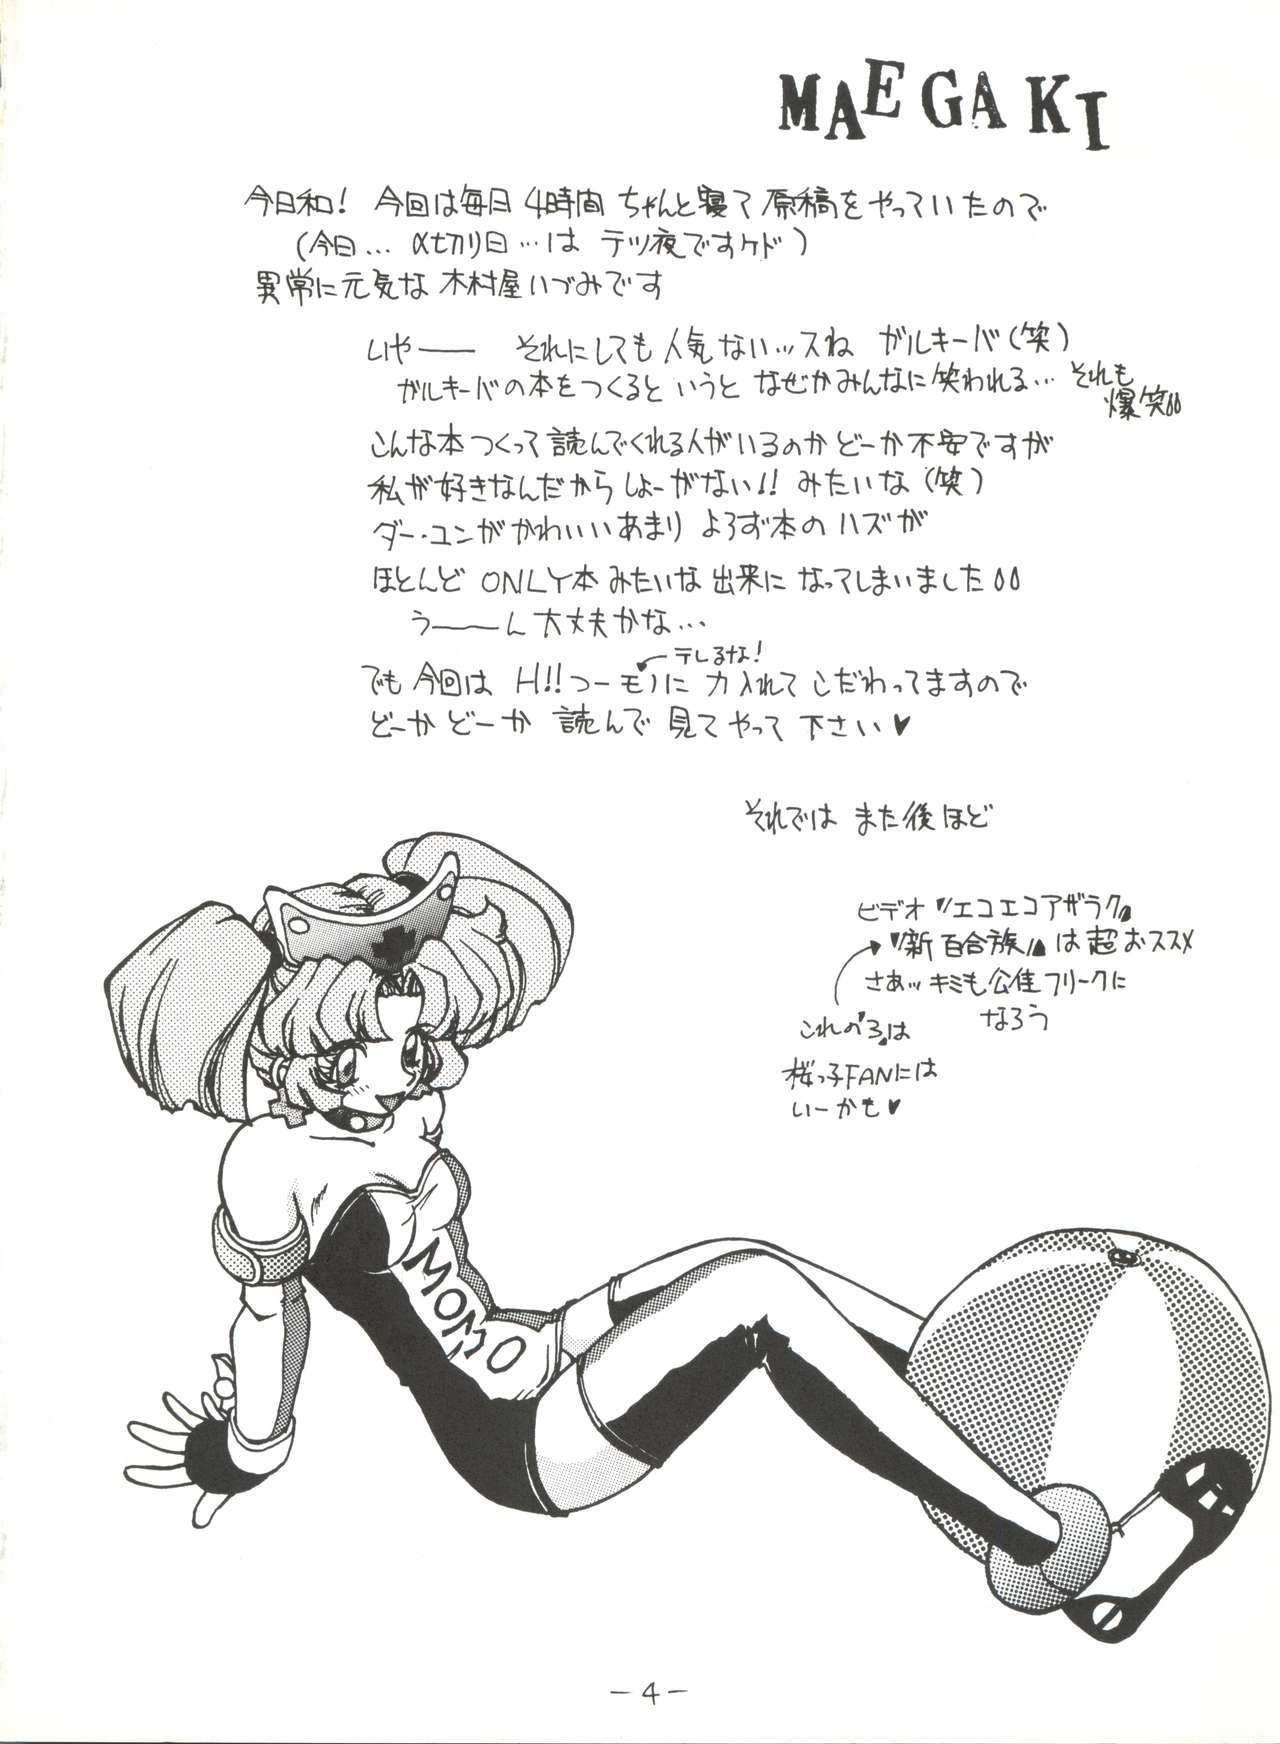 MAEGAKI
今日和! 今回は毎日 4時間 ちゃんと寝て 原稿をやっていたので
(今日... 〆切り日...は テツ夜ですケド)
異常に元気な 木村屋いづみです
いやー― それにしても人気ないッスね ガルキーバ(笑)
ガルキーバの本をつくると いうと なぜかみんなに笑われる... それも
爆笑
こんな本つくって読んでくれる人がいるのか どーか不安ですが
私が好きなんだから しょーがない!! みたいな(笑)
ダー・ユンがかわいいあまり よろず本のハズが
ほとんど ONLY本 みたいな 出来に なってしまいました
う――ん 大丈夫かな...
テレるな!
でも 今回は H!!つーモノに 力入れて こだわってますので
どーか どーか 読んで 見て やって 下さい♥
それでは また後ほど
ビデオ『エコエコアザラク』
『新百合族』は超おススメ
さあッ キミも 公佳フリークに
なろう
これの3は
桜っ子FANには
いーかも♥
MOMO
-4-